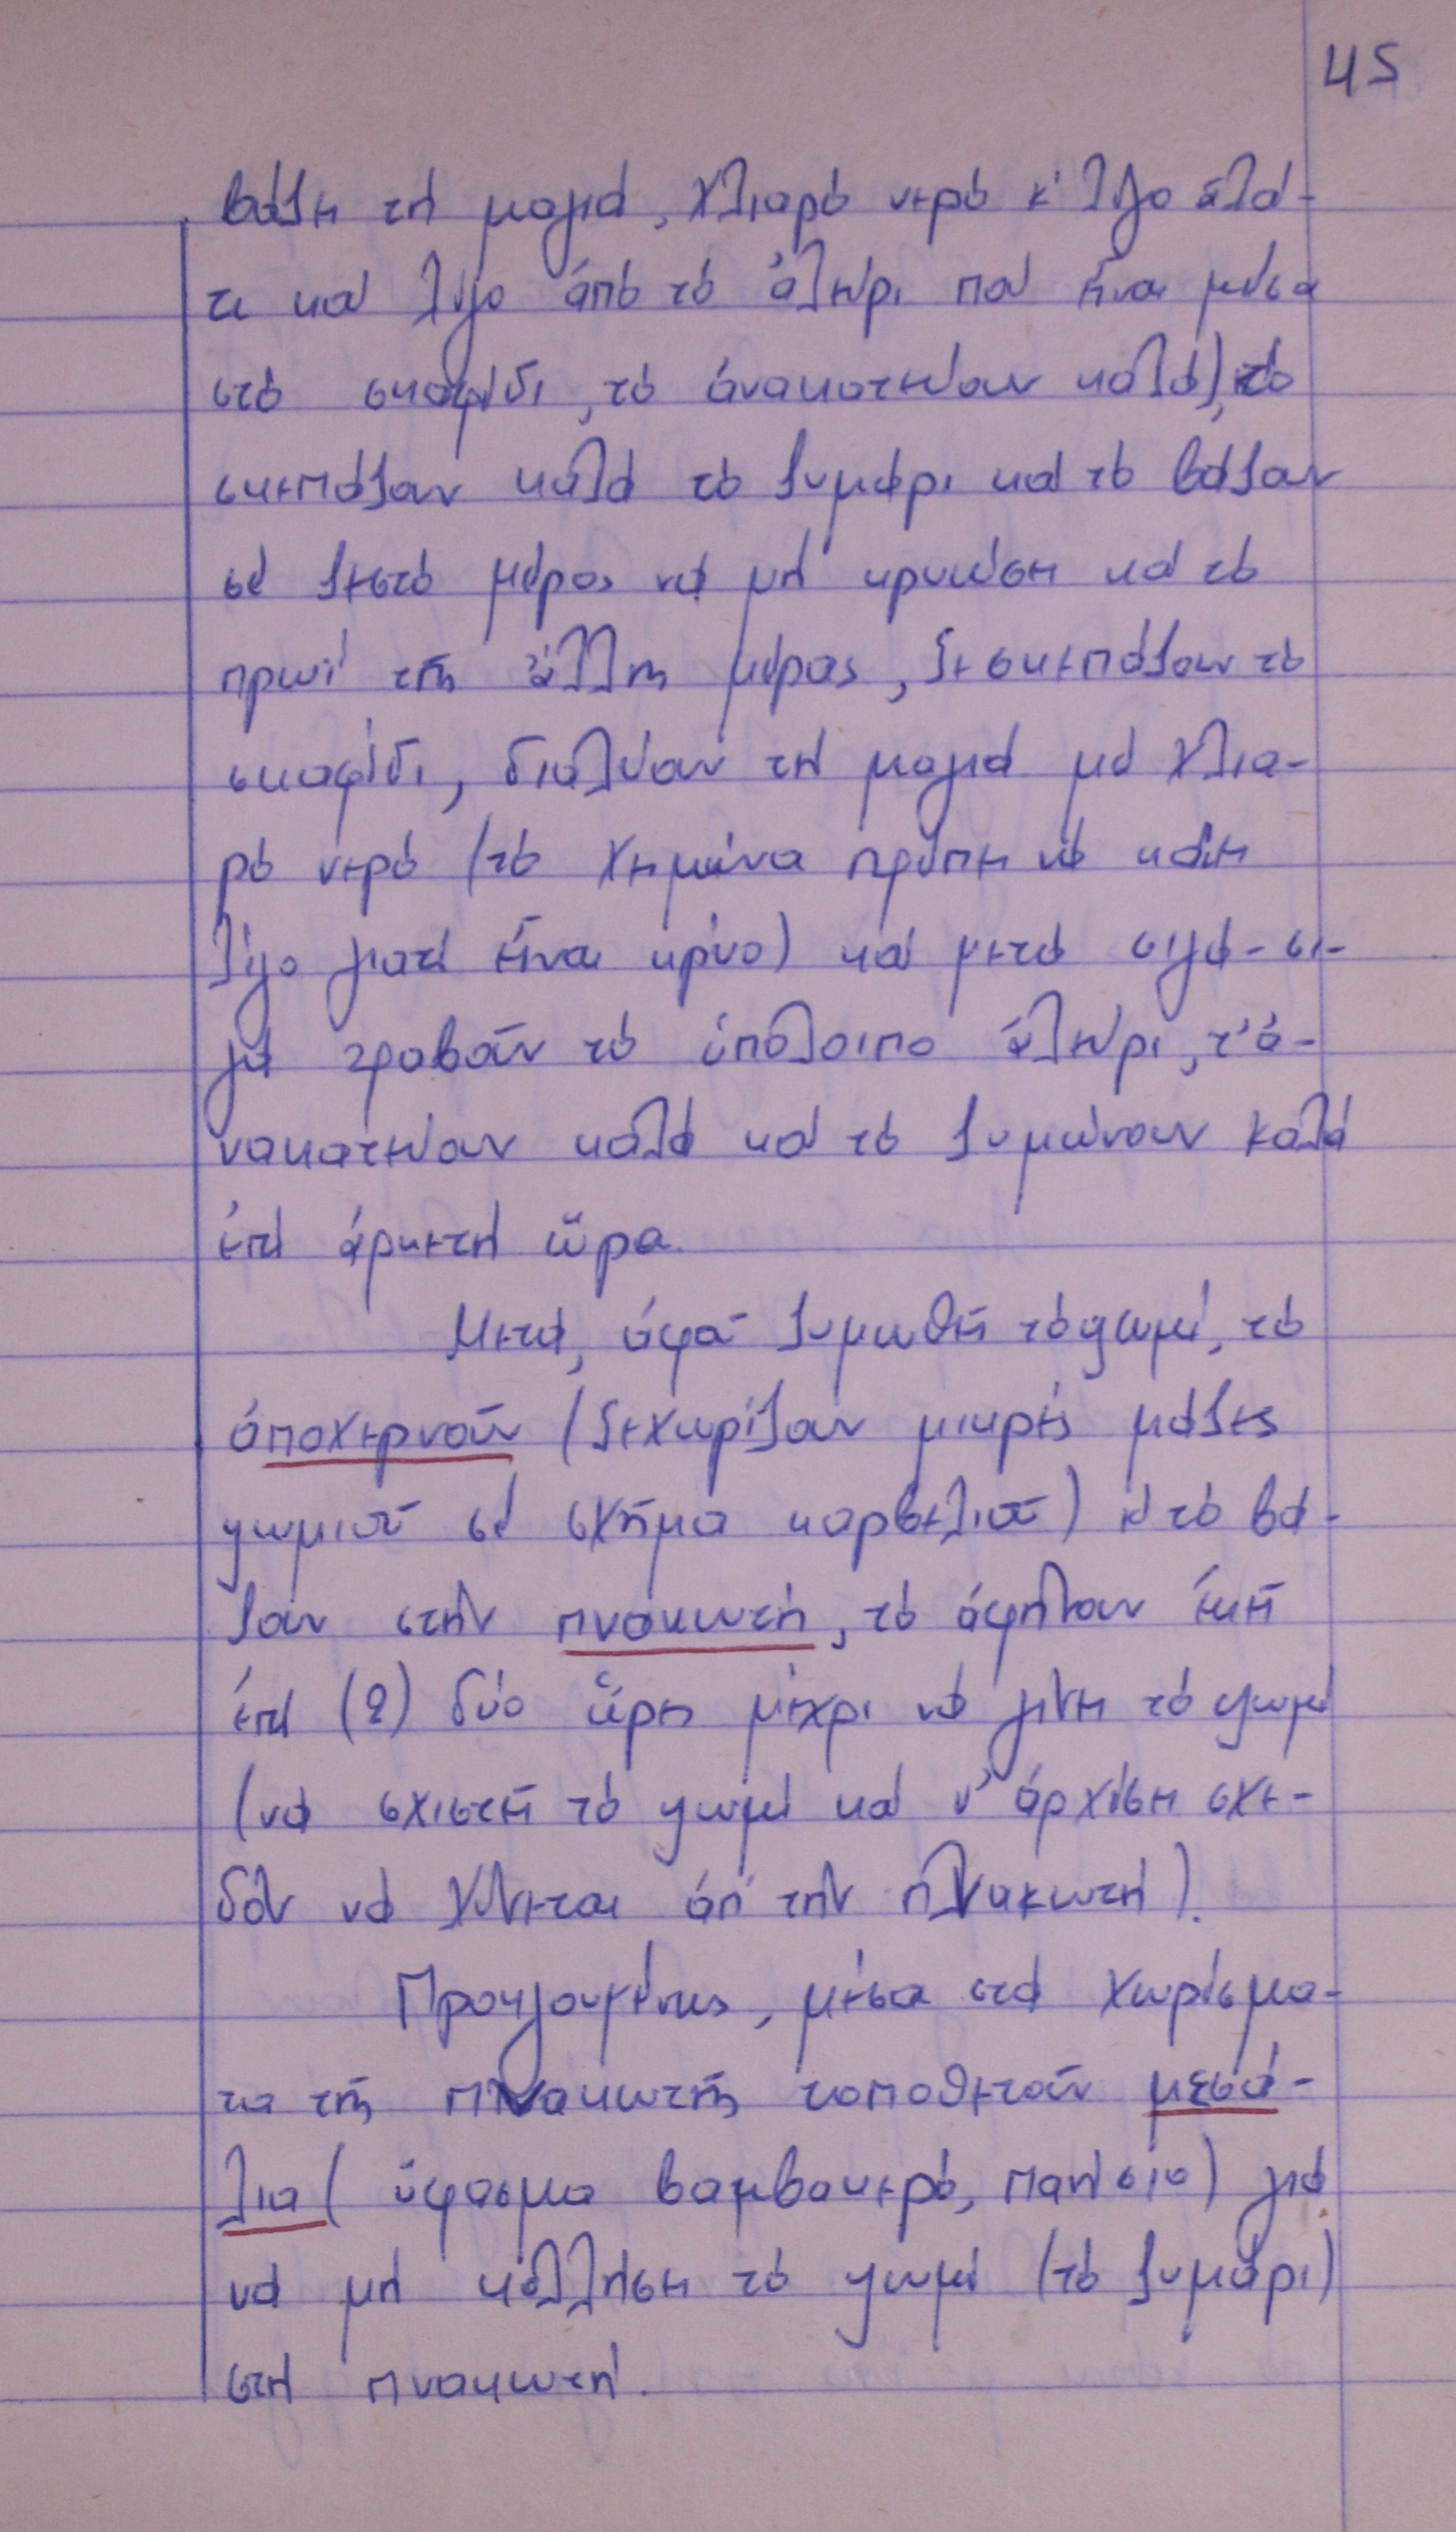 45
βάζει τή μαγιά, χλιαρό νερό κ' λίγο ἁλά-
τι καί λίγο ἀπό τό ἀλεύρι πού εἶναι μέσα
στό σκαφίδι, τό ἀνακατεύουν καλά), τό
σκεπάζουν καλά τό ζυμάρι καί τό βάζουν
σέ ζεστό μέρος νά μή κρυώση καί τό
πρωΐ τῆς ἄλλης μέρας, ξεσκεπάζουν τό
σκαφίδι, διαλύουν τή μαγιά μέ χλια-
ρό νερό (τό χειμώνα πρέπει νά καίει
λίγο γιατί εἶναι κρύο) καί μετά σιγά-σι-
γά τραβοῦν τό ὑπόλοιπο ἀλεύρι, τ' ἀ-
νακατεύουν καλά καί τό ζυμώνουν καλά
ἐπί ἀρκετή ὥρα.
Μετά, ἀφοῦ ζυμωθεῖ τό ψωμί, τό
ἀποχερνοῦν (ξεχωρίζουν μικρές μάζες
ψωμιοῦ σέ σχῆμα καρβελιοῦ) κ' τό βά-
ζουν στήν πνακωτή, τό ἀφήνουν ἐκεῖ
ἐπί (2) δύο ὥρες μέχρι νά γίνει τό ψωμί
(νά σχιστεῖ τό ψωμί καί ν' ἀρχίσει σχε-
δόν νά χύνεται ἀπ' τήν πνακωτή).
Προηγουμένως, μέσα στά χωρίσμα-
τα τῆς πνακωτῆς τοποθετοῦν μεσά-
λια (ὕφασμα βαμβακερό, πανίσιο) γιά
νά μή κολλήσει τό ψωμί (τό ζυμάρι)
στή πνακωτή.